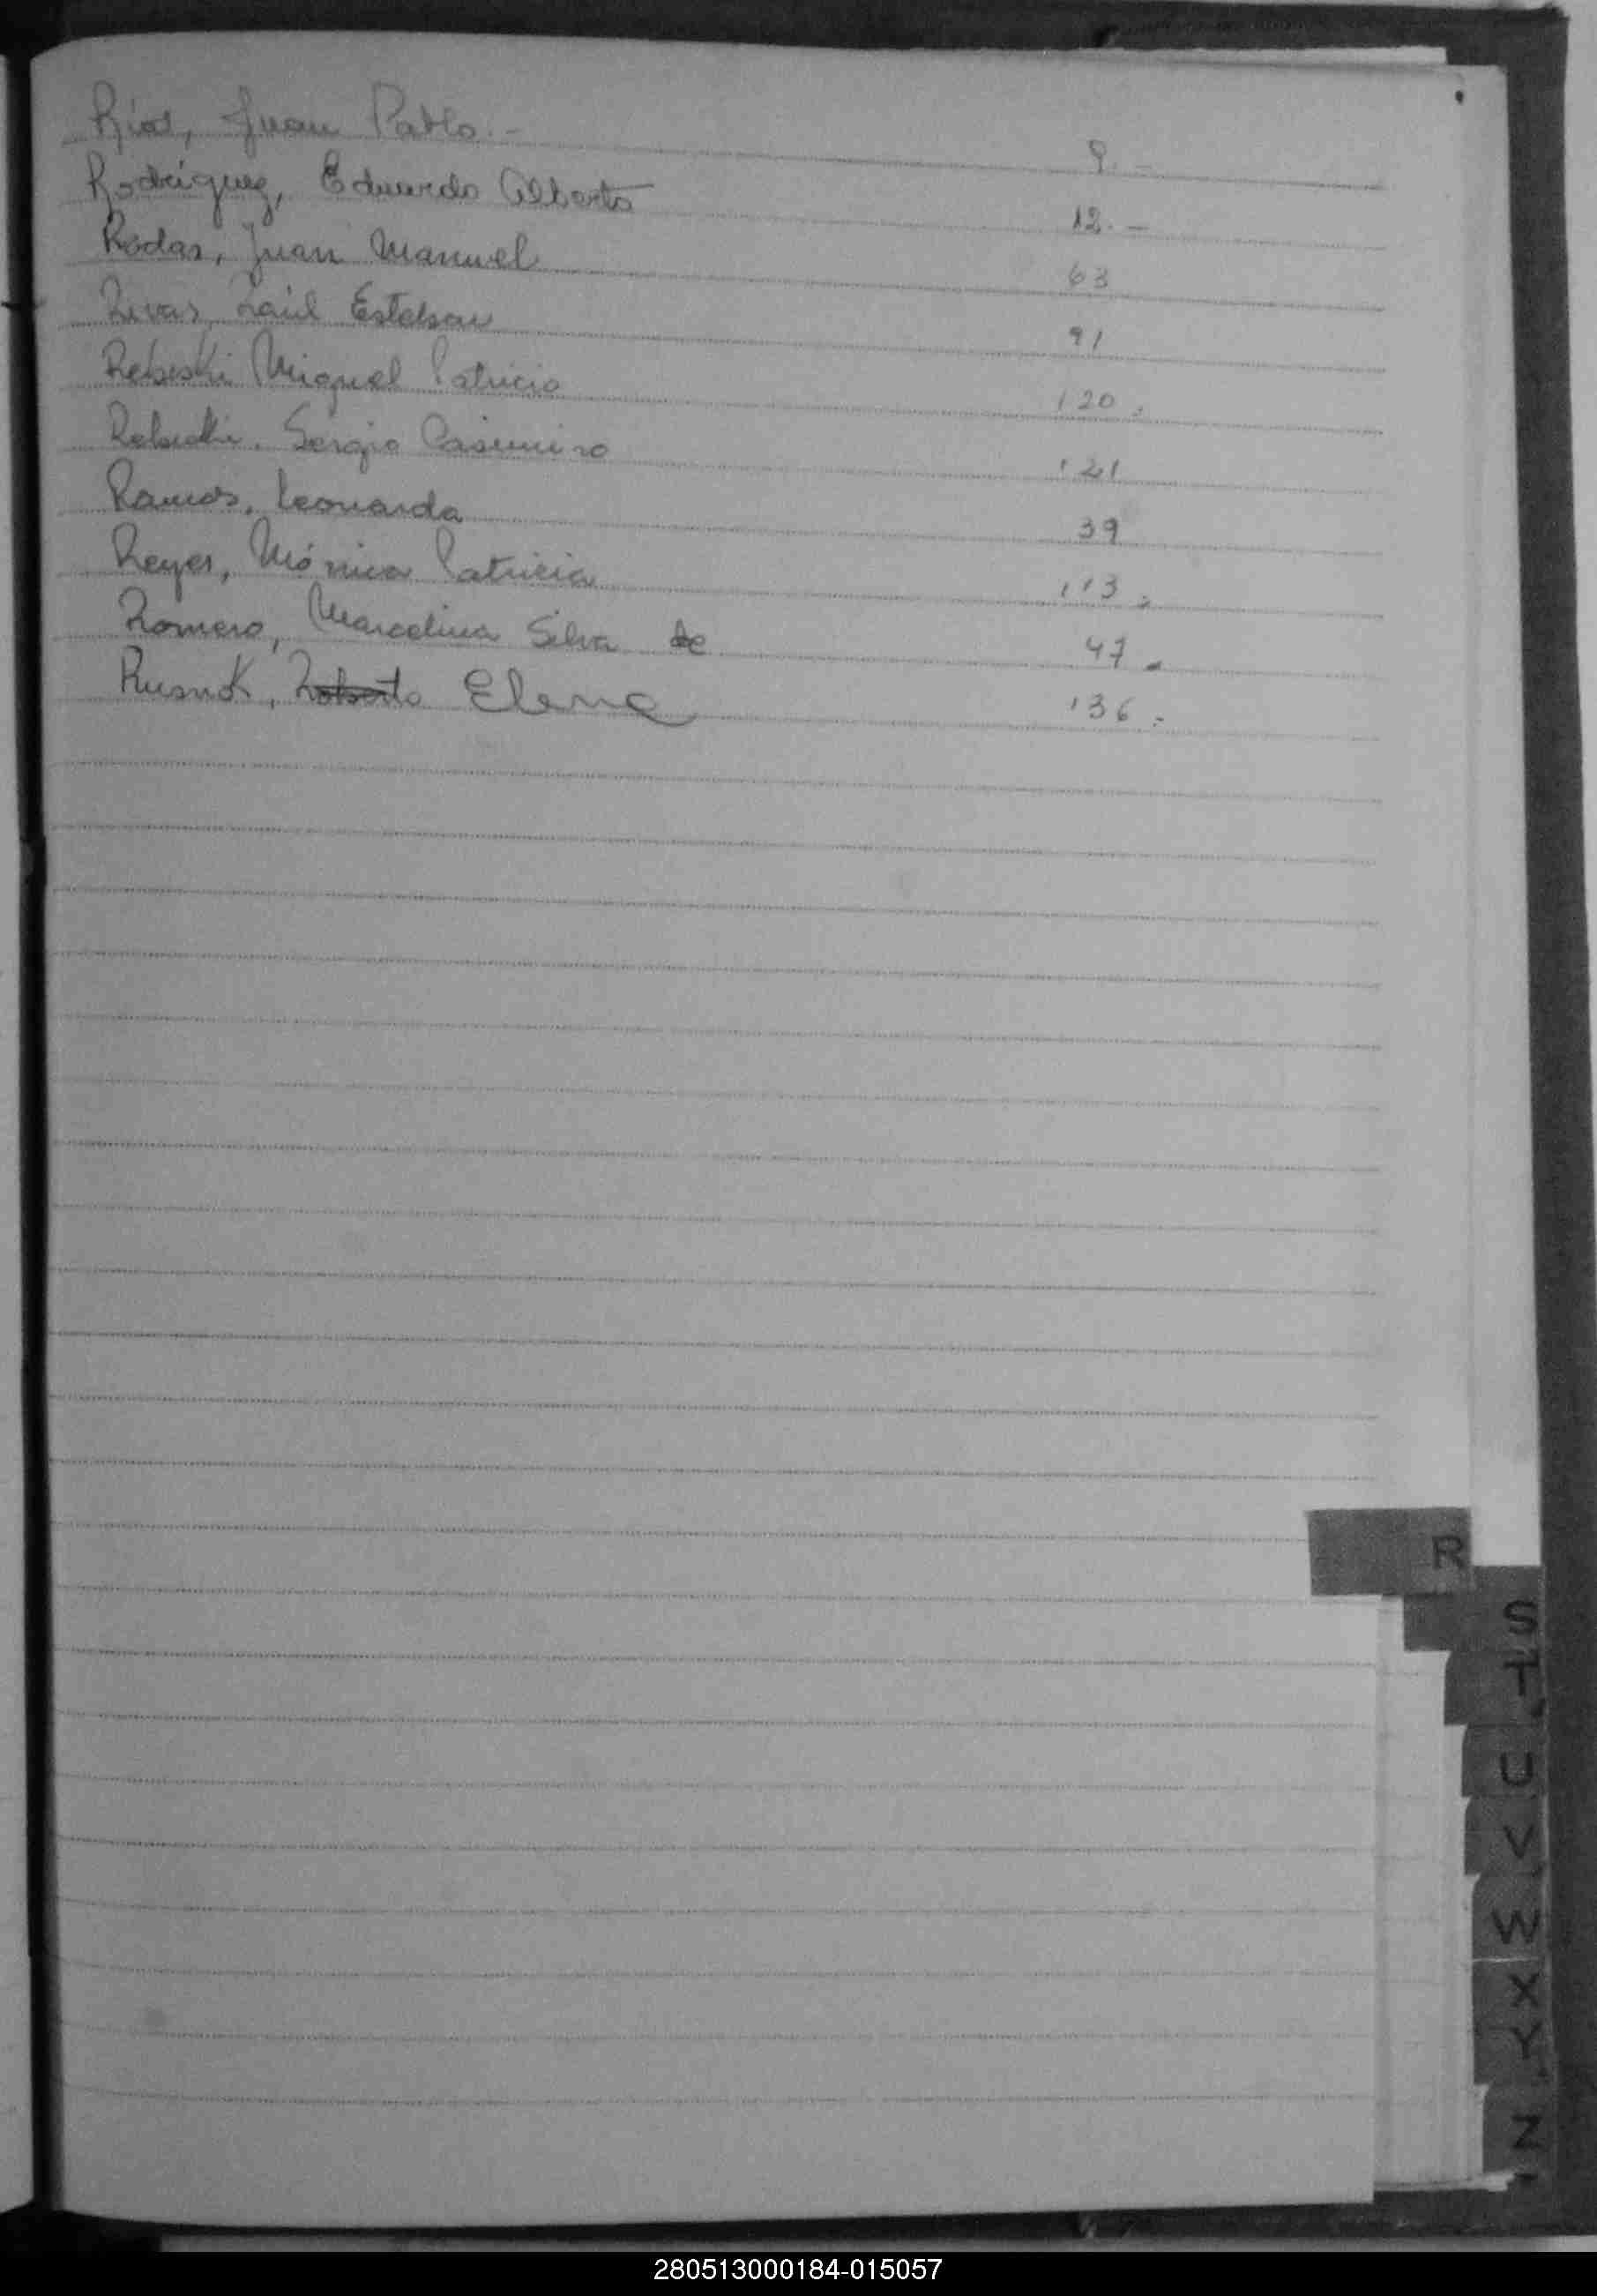 Ríos, Juan Pablo.- 9.-
Rodríguez, Eduardo Alberto 12.-
Rodas, Juan Manuel 63
Rivas, Raúl Esteban 91
Rebeski Miguel Patricio 120.
Rebeski, Sergio Casimiro 121
Ramos, Leonarda 39
Reyes, Mónica Patricia 113.
Romero, Marcelina Silva de 47.
Rusnok, Roberto Elena 136.
R
S
T
U
V
W
X
Y
Z
280513000184-015057